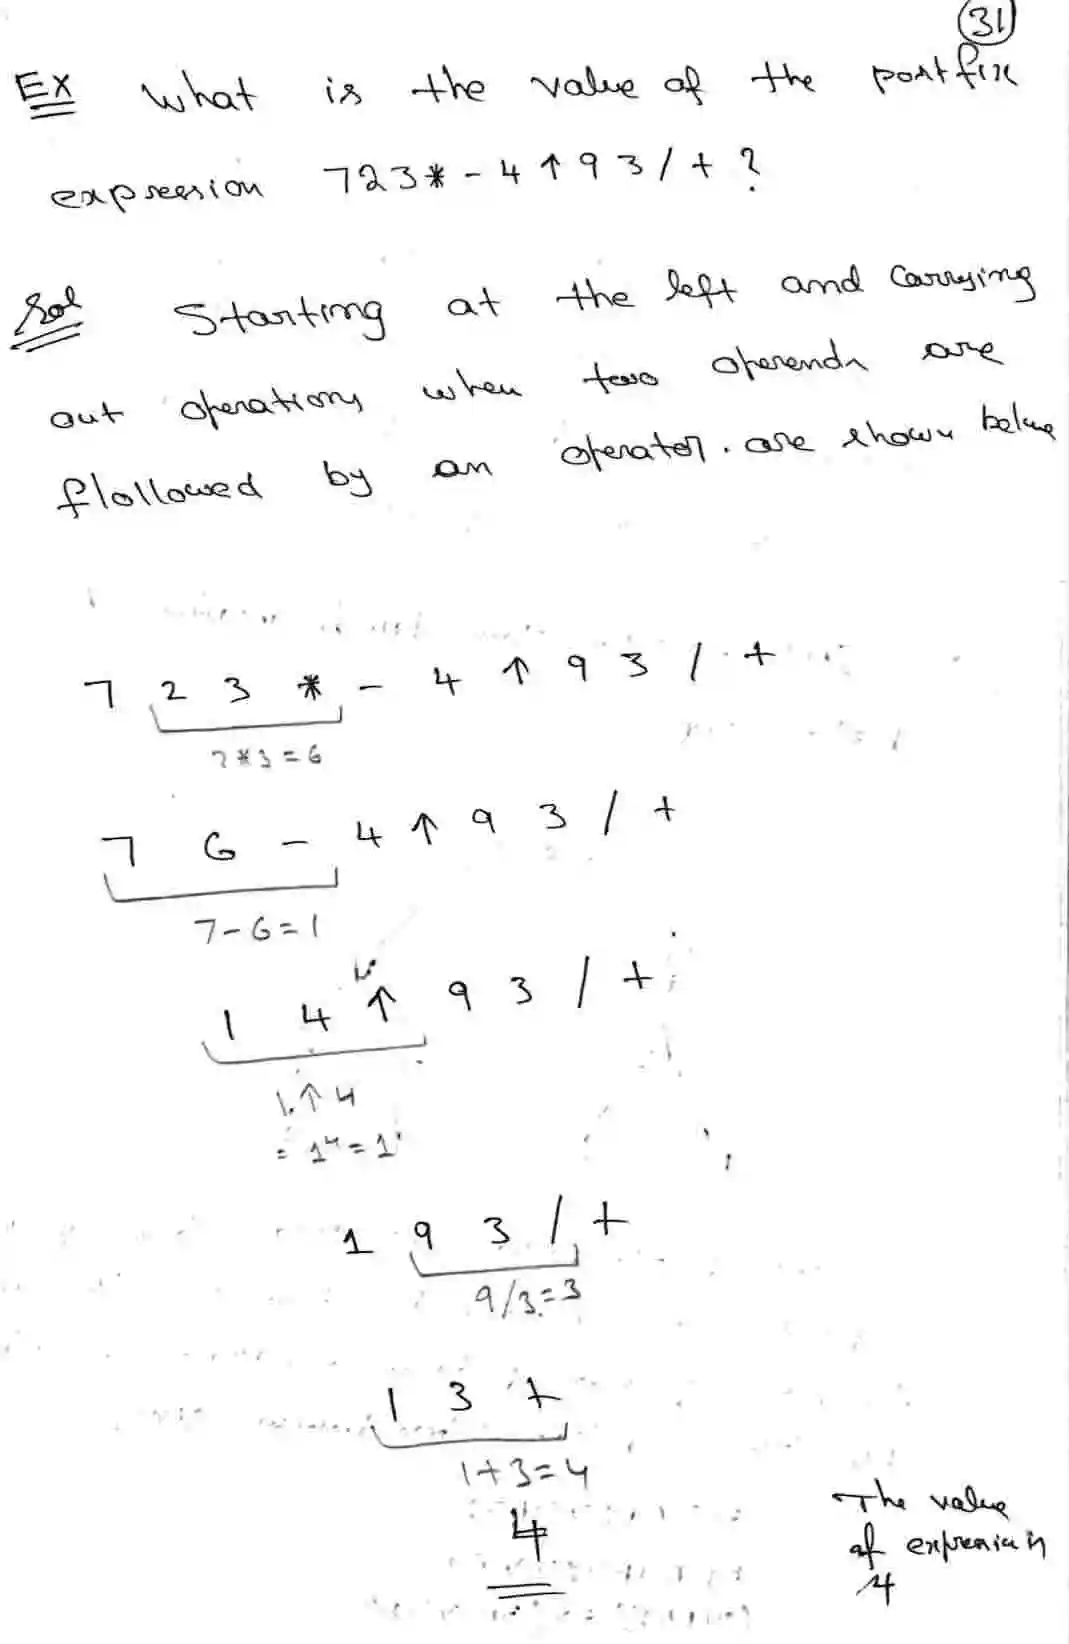 31
Ex What is the value of the postfix
expression 7 2 3 * - 4 ↑ 9 3 / + ?
Sol Starting at the left and Carrying
out operations when two operands are
flollowed by an operator. are shown below
7 2 3 * - 4 ↑ 9 3 / +
2*3=6
7 6 - 4 ↑ 9 3 / +
7-6=1
1 4 ↑ 9 3 / +
1↑4
= 1⁴ = 1
1 9 3 / +
9/3=3
1 3 +
1+3=4
4
The value
of expression is
4